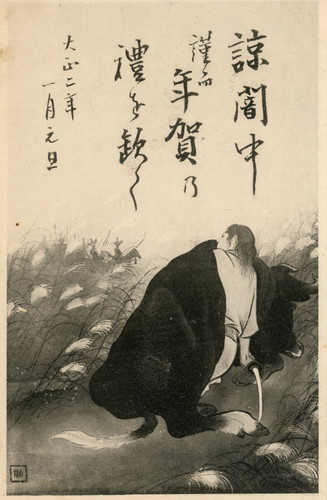 諒闇中
謹而
年賀乃
禮を欽く
大正二年
一月元旦